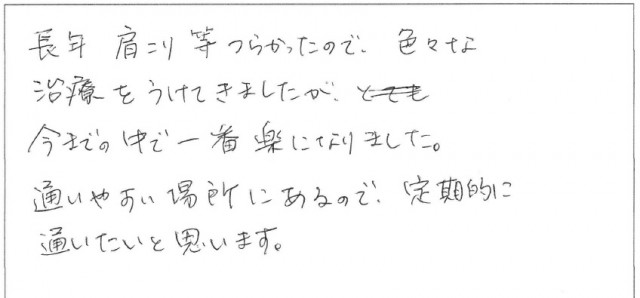 長年 肩こり 等 つらかったので、色々な
治療をうけてきましたが、とても
今までの中で一番楽になりました。
通いやすい場所にあるので、定期的に
通いたいと思います。